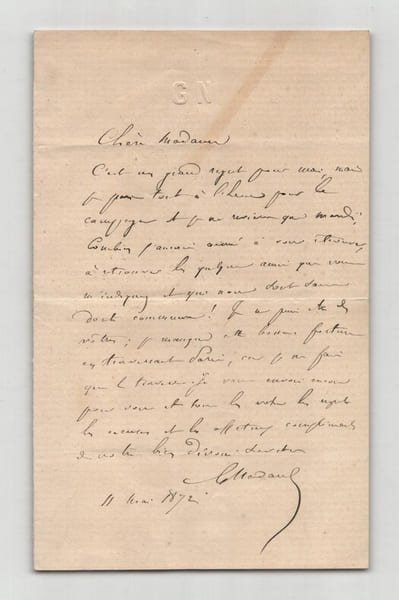 GN
Chère Madame
C'est un grand regret pour moi, mais
je pars tout à l'heure pour la
campagne et je ne reviens que mardi.
Combien j'aurais aimé à vous retrouver,
à retrouver les quelques amis que vous
m'indiquez et qui nous sont sans
doute communs! Je ne puis être des
vôtres; je manque cette bonne fortune
en traversant Paris, car je ne fais
que le traverser. Je vous envoie
pour vous et tous les vôtres les regrets
les excuses et les affectueux compliments
de votre bien dévoué
11 Mai 1872